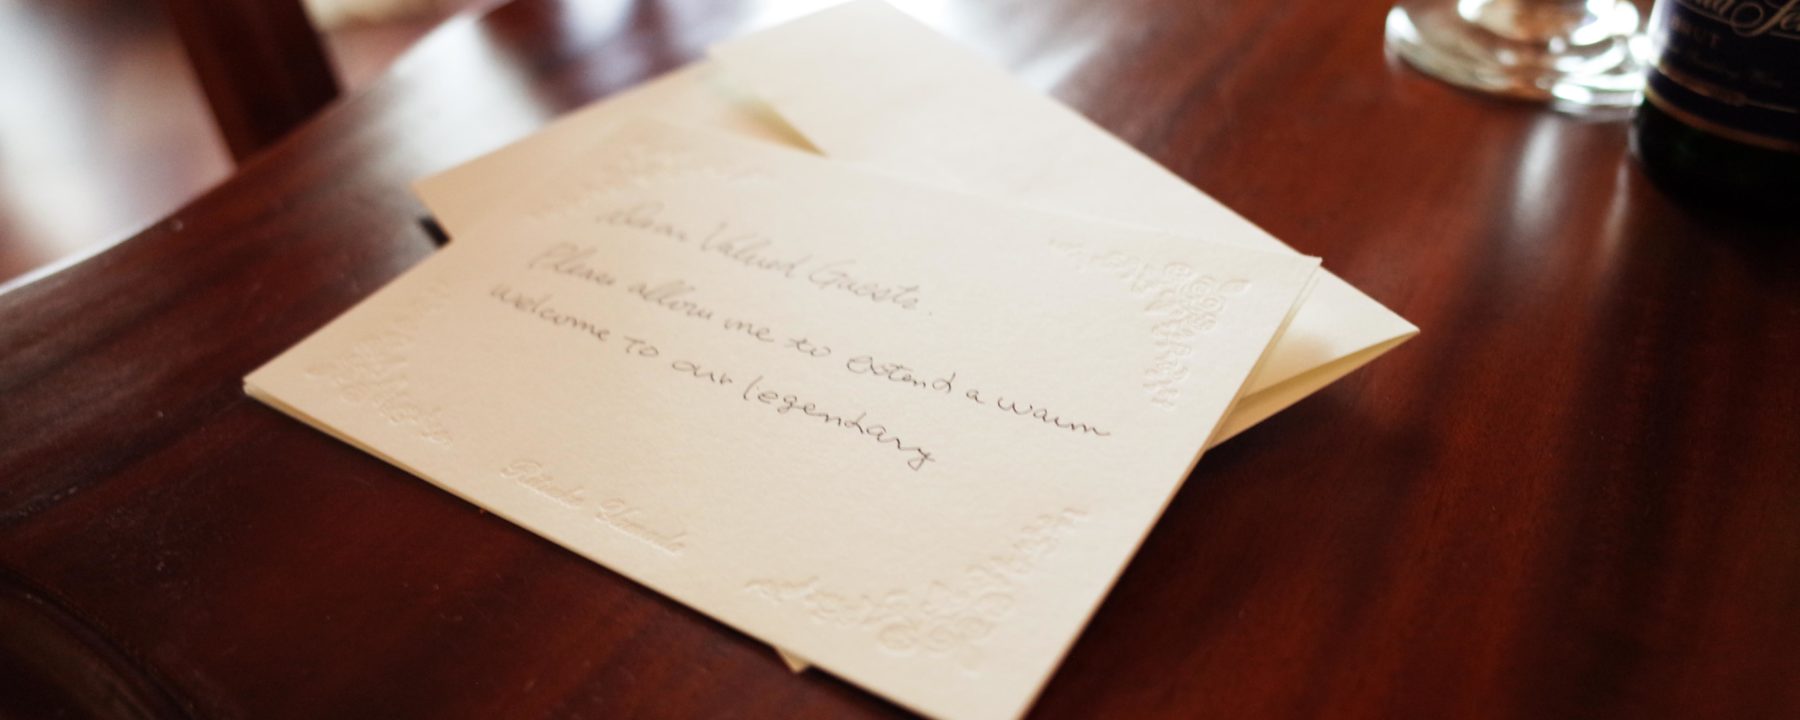 Dear Valued Guests.
Please allow me to extend a warm
welcome to our legendary